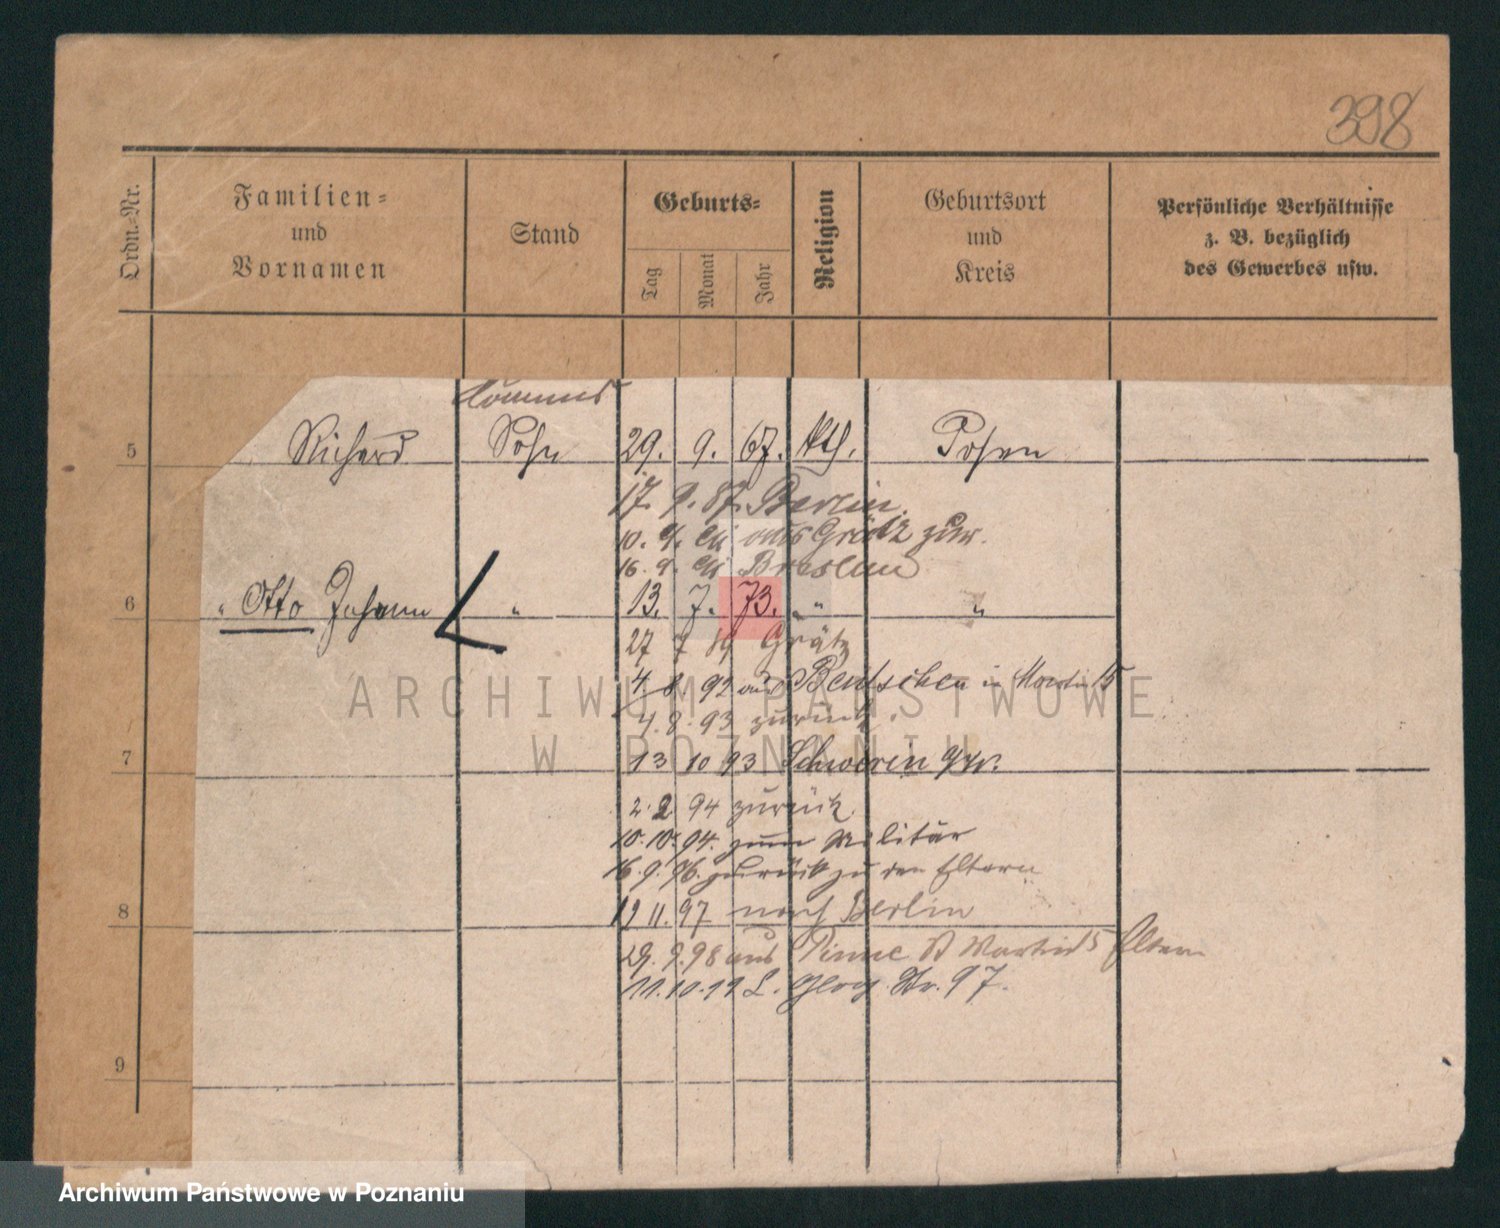 398
Ordn.-Nr.
Familien-
und
Vornamen
Stand
Geburts-
Tag
Monat
Jahr
Religion
Geburtsort
und
Kreis
Persönliche Verhältnisse
z. B. bezüglich
des Gewerbes usw.
Commis
5 Richard Sohn 29. 9. 67. kth. Posen
17. 9. 87. Berlin.
10. 9. aus Grätz zur.
16. 9. Breslau
6 " Otto Johann " 13. 7. 73. " "
27 7 89 Grätz
4 8 92 aus Bentschen in Martin 15
4. 8. 93 zurück.
7 13 10 93 Schwerin a/W.
2. 2 94 zurück
10. 10. 94. zum Militär
16. 9. 96. zurück zu den Eltern
8 19 11. 97 nach Berlin
29. 9. 98 aus Pinne St Martin 5 Eltern
11. 10. 19 L. Glog. Str. 97.
9
ARCHIWUM PAŃSTWOWE
W POZNANIU
Archiwum Państwowe w Poznaniu